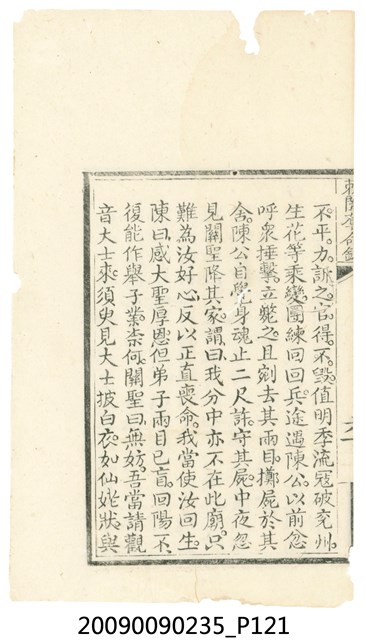 不平。力訴之官。得不毀。值明季流寇破兗州。
生花等乘變。團練回回兵。途遇陳公。以前忿
呼眾捶擊。立斃之。且剜去其兩目。擲屍於其
舍。陳公自覺身魂止二尺許。守其屍。中夜忽
見關聖降其家。謂曰我分中亦不在此廟。只
難為汝好心。反以正直喪命。我當使汝回生。
陳曰。感大聖厚恩。但弟子兩目已盲。回陽不
復能作舉子業。柰何。關聖曰。無妨。吾當請觀
音大士來。須臾見大士披白衣。如仙姥狀。與
20090090235_P121